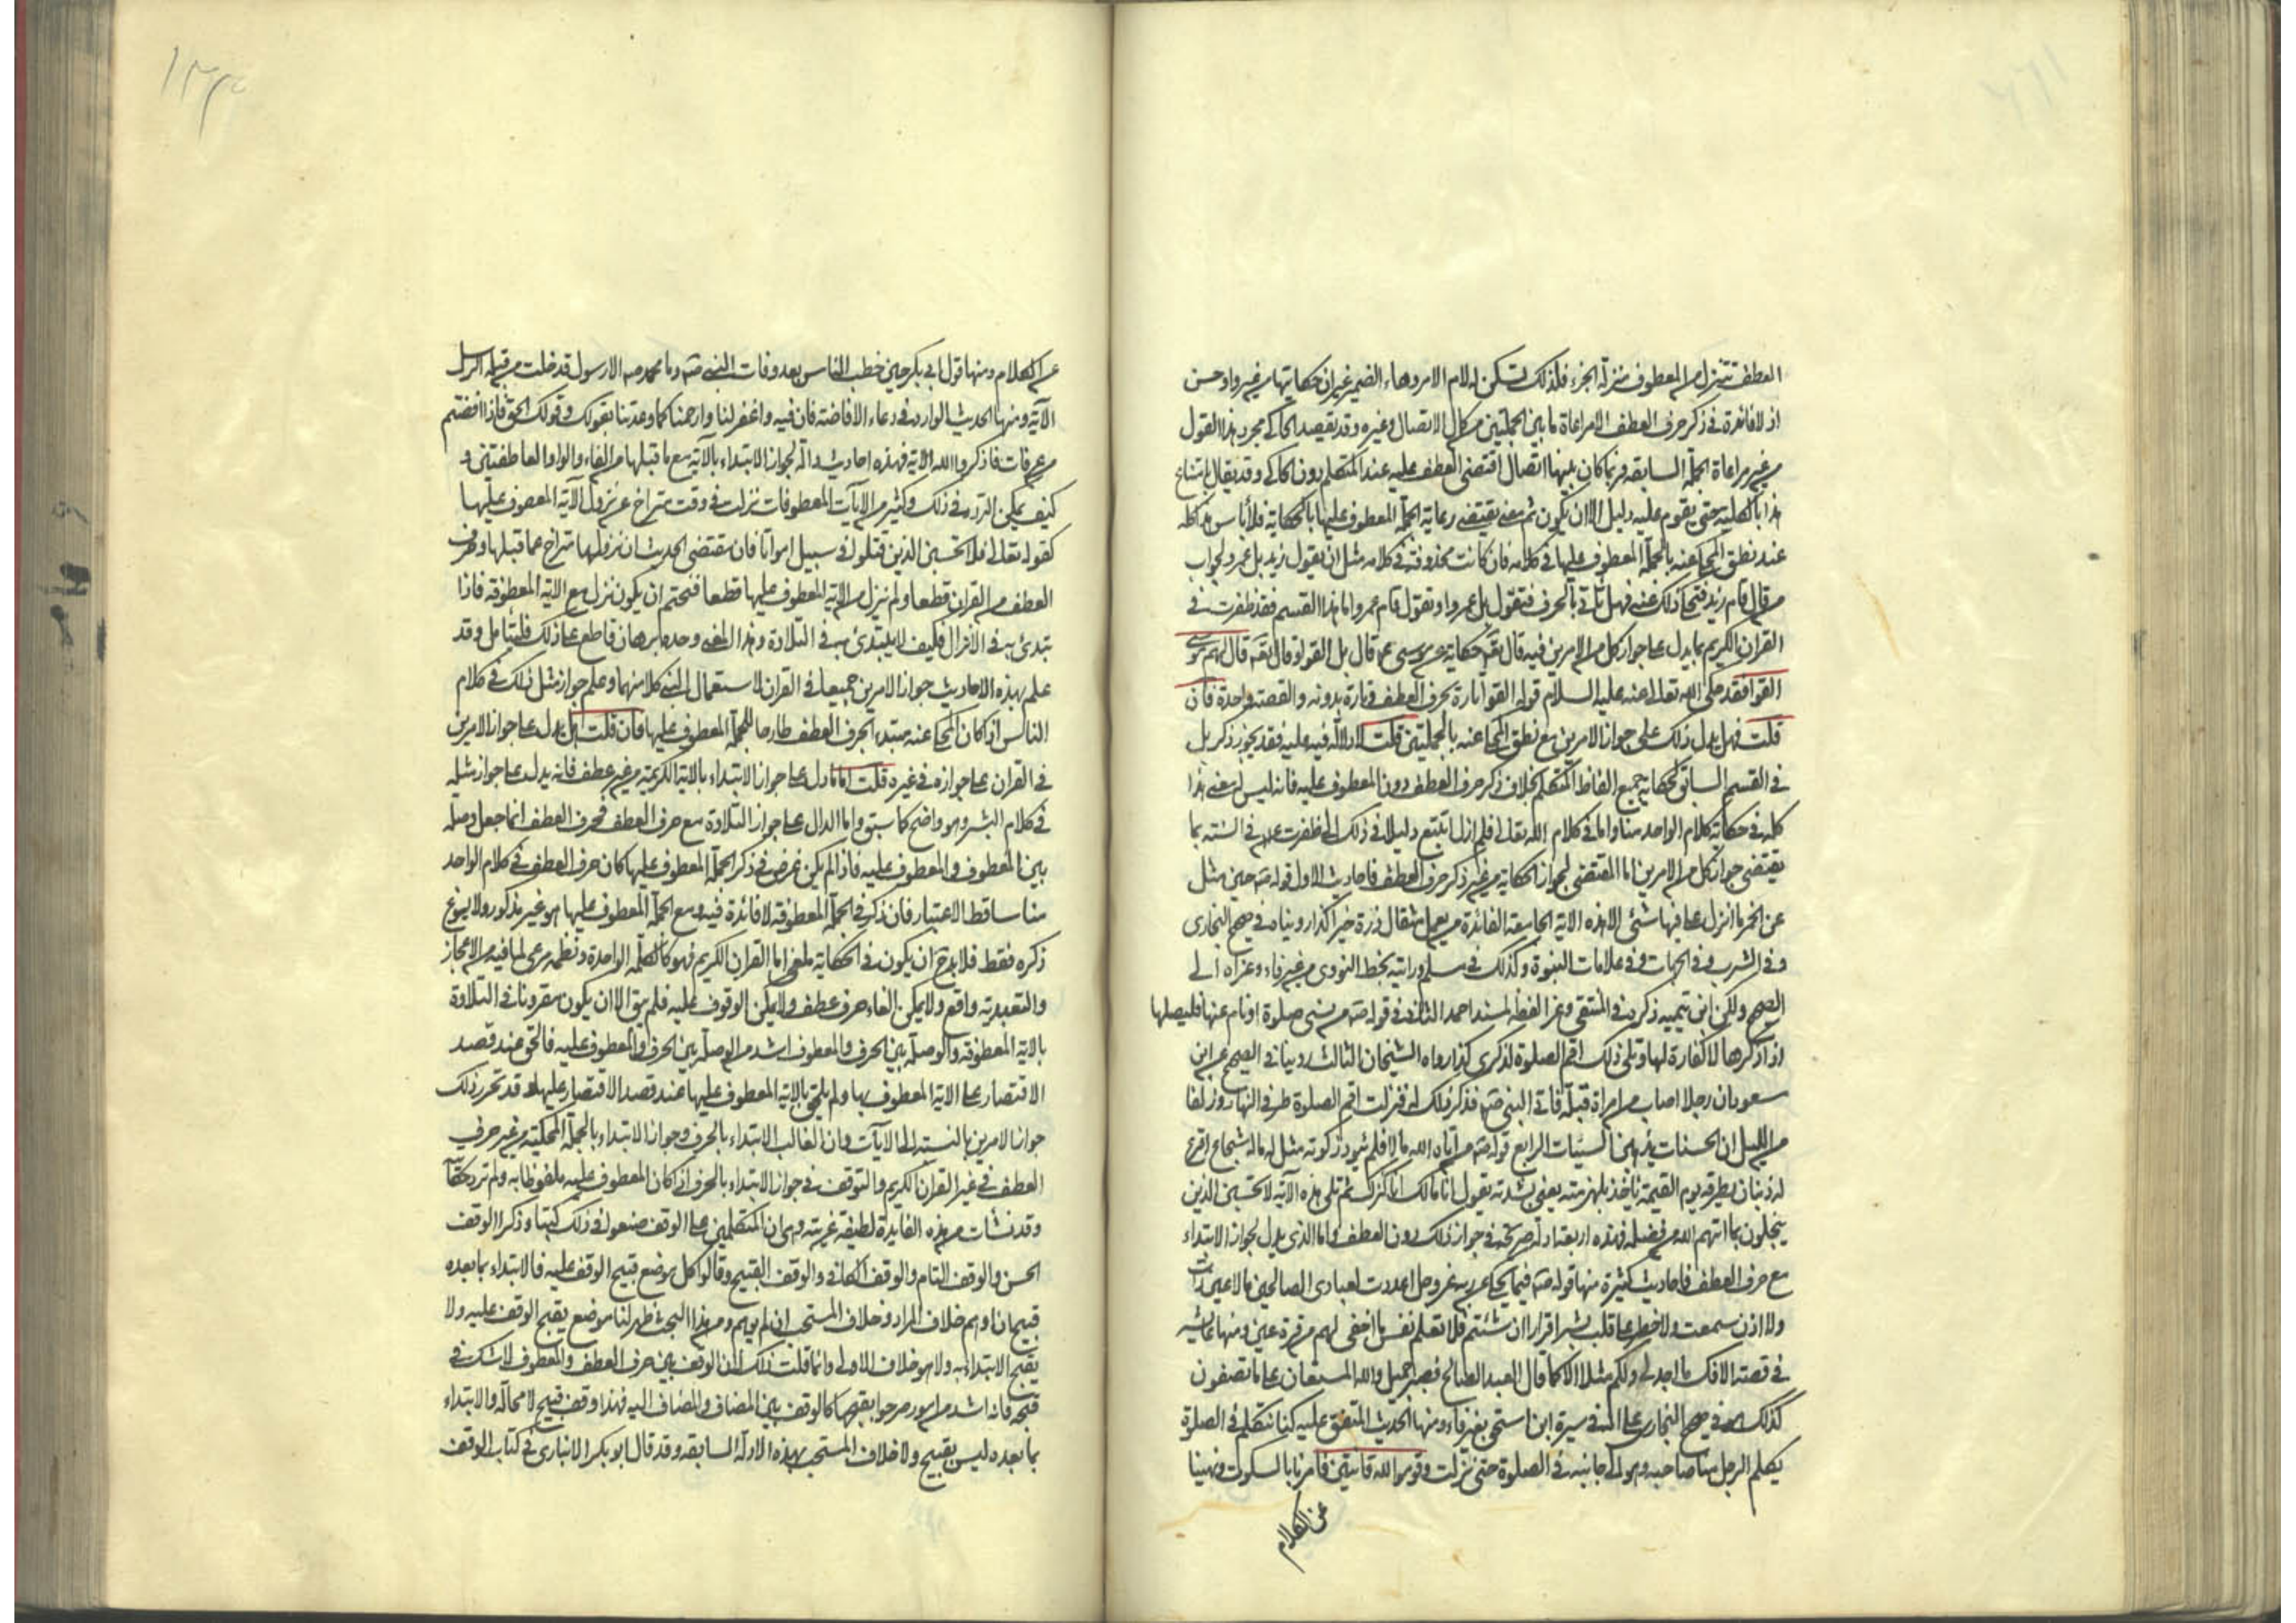 العطف تتنزل من المعطوف منزلة الجزء فلذلك تسكن له لام الامر وهاء الضمير غير ان حكايتها من غير واو حسن
اذ لا فائدة في ذكر حرف العطف الا مراعاة ما بين الجملتين من كمال الاتصال وغيره وقد يقصد الحاكي مجرد هذا القول
من غير مراعاة الجملة السابقة وربما كان بينهما اتصال اقتضى العطف عليه عند المتكلم دون الحاكي وقد يقال بامتناع
هذا بالكلية حتى يقوم عليه دليل الا ان يكون ثم معنى يقتضي رعاية الجملة المعطوف عليها بالحكاية فلا بأس هذا كله
عند نطق المحكي عنه بالجملة المعطوف عليها في كلامه فان كانت محذوفة في كلامه مثل ان يقول زيد بل عمرو لجواب
من قال قام زيد فتحكي ذلك عنه فهل تأتي بالحرف فتقول بل عمرو او تقول قام عمرو اما هذا القسم فقد ظفرت في
القران الكريم بما يدل على جواز كل من الامرين فيه قال تعه حكاية عن موسى عم قال بل القوا وقال تعه قال لهم موسى
القوا فقد حكى الله تعالى عنه عليه السلام قوله القوا تارة بحرف العطف وتارة بدونه والقصة واحدة فان
قلت فهل يدل ذلك على جواز الامرين مع نطق المحكي عنه بالجملتين قلت لا دلالة فيه عليه فقد يجوز ذكر بل
في القسم السابق لحكاية جميع الفاظ المتكلم بخلاف ذكر حرف العطف دون المعطوف عليه فانه ليس له معنى هذا
كله في حكاية كلام الواحد منا واما في كلام الله تعالى فلم ازل اتتبع دليلا في ذلك الى ظفرت في السنة بما
يقتضي جواز كل من الامرين اما المقتضي لجواز الحكاية من غير ذكر حرف العطف فاحاديث الاول قوله صه حين سئل
عن الحمر ما انزل علي فيها شئ الا هذه الاية الجامعة الفائدة من يعمل مثقال ذرة خيرا كذا روينا في صحيح البخاري
وفي الشرب وفي الجهات وفي علامات النبوة وكذلك في مسلم ورايته بخط النووي من غير فاء وعزاه الى
الصحيح ولكن ابن تيميه ذكره في المنتقى وعزا لفظه لمسند احمد الثاني في قوله صه من نسي صلوة او نام عنها فليصلها
اذا ذكرها لا كفارة لها وتلى ذلك اقم الصلوة لذكري كذا رواه الشيخان الثالث روينا في الصحيح عن ابن
مسعود ان رجلا اصاب من امراة قبلة فاتى النبي صه فذكر ذلك له فنزلت اقم الصلوة طرفي النهار وزلفا
من الليل ان الحسنات يذهبن السيئات الرابع قوله صه من آتاه الله مالا فلم يؤد زكوته مثل له ماله شجاع اقرع
له زبيبتان يطوقه يوم القيمة ياخذ بلهزمته يعني بشدقه يقول انا مالك انا كنزك ثم تلى هذه الآية لا تحسبن الذين
يبخلون بما اتيهم الله من فضله فهذه اربعة ادلة صريحة في جواز ذلك دون العطف واما الذي يدل لجواز الابتداء
مع حرف العطف فاحاديث كثيرة منها قوله صه فيما يحكي عن ربه عز وجل اعددت لعبادي الصالحين ما لا عين رأت
ولا اذن سمعت ولا خطر على قلب بشر اقراوا ان شئتم فلا تعلم نفس ما اخفي لهم من قرة عين ومنها عائشة
في قصة الافك ما اجد لي ولكم مثلا الا كما قال العبد الصالح فصبر جميل والله المستعان على ما تصفون
كذلك هو في صحيح البخاري على الـ في سيرة ابن اسحق بغير فاء ومنها الحديث المتفق عليه كنا نتكلم في الصلوة
يكلم الرجل منا صاحبه وهو الى جانبه في الصلوة حتى نزلت وقوموا لله قانتين فامرنا بالسكوت ونهينا
عن الكلام
عن الكلام ومنها قول ابي بكر حين خطب الناس بعد وفات النبي صه وما محمد صه الا رسول قد خلت من قبله الرسل
الآية ومنها الحديث الوارد في دعاء الافاضة فان فيه واغفر لنا وارحمنا كما وعدتنا بقولك وقولك الحق فاذا افضتم
من عرفات فاذكروا الله الاية فهذه احاديث دالة لجواز الابتداء بالآية مع ما قبلها من الفاء والواو العاطفتين و
كيف يمكن التردد في ذلك وكثير من الايات المعطوفات نزلت في وقت متراخ عن نزول الآية المعطوف عليها
كقوله تعالى ولا تحسبن الذين قتلوا في سبيل امواتا فان مقتضى الحديث ان نزولها متراخ عما قبلها وحرف
العطف من القران قطعا ولم ينزل مع الاية المعطوف عليها قطعا فتحتم ان يكون نزل مع الاية المعطوفة فاذا
يتدئ به في الانزال فكيف لا يبتدئ به في التلاوة وهذا المعنى وحده برهان قاطع على ذلك فليتأمل وقد
علم بهذه الاحاديث جواز الامرين جميعا في القران لاستعمال النبي كلا منهما وعلم جواز مثل ذلك في كلام
الناس اذا كان المحكي عنه مبتدءا بحرف العطف طارحا للجملة المعطوف عليها فان قلت هل يدل على جواز الامرين
في القران على جوازه في غيره قلت اما ما دل على جواز الابتداء بالاية الكريمة من غير عطف فانه يدل على جواز مثله
في كلام البشر وهو واضح كما سبق واما الدال على جواز التلاوة مع حرف العطف فحرف العطف انما جعل وصلة
بين المعطوف والمعطوف عليه فاذا لم يكن غرض في ذكر الجملة المعطوف عليها كان حرف العطف في كلام الواحد
منا ساقط الاعتبار فان ذكره في الجملة المعطوفة لا فائدة فيه ومع الجملة المعطوف عليها هو غير مذكور ولا يسوغ
ذكره فقط فلا يدخ ان يكون في الحكاية ملغى اما القران الكريم فهو كالكلمة الواحدة ونظمه مرعي لما فيه من الاعجاز
والتعبد به واقع ولا يمكن الغاء حرف عطف ولا يمكن الوقوف عليه فلم يبق الا ان يكون مقرونا في التلاوة
بالاية المعطوفة والوصلة بين الحرف والمعطوف اشد من الوصلة بين الحرف والمعطوف عليه فالحق عند قصد
الاقتصار على الاية المعطوف بها ولم يلحق بالاية المعطوف عليها عند قصد الاقتصار عليها وقد تحرر ذلك
جواز الامرين بالنسبة الى الايات وان الغالب الابتداء بالحرف وجواز الابتداء بالجملة المحكية من غير حرفي
العطف في غير القران الكريم والتوقف في جواز الابتداء بالحرف اذا كان المعطوف عليه ملفوظا به ولم ترد حكايتها
وقد نشات من هذه الفايدة لطيفة غريبة وهي ان المتكلمين على الوقف صنعوا في ذلك كتبا وذكروا الوقف
الحسن والوقف التام والوقف الكافي والوقف القبيح وقالوا كل موضع قبيح الوقف عليه فالابتداء بما بعده
قبيح ان اوهم خلاف المراد وخلاف المستحب ان لم يوهم ومن هذا البحث ظهر لنا موضع يقبح الوقف عليه ولا
يقبح الابتداء به ولا هو خلاف الاولى وانما قلت ذلك لان الوقف بين حرف العطف والمعطوف لا شك في
قبحه فانه اشد من امور صرحوا بقبحها كالوقف بين المضاف والمضاف اليه فهذا وقف قبيح لا محالة والابتداء
بما بعده ليس بقبيح ولا خلاف المستحب بهذه الادلة السابقة وقد قال ابو بكر الانباري في كتاب الوقف